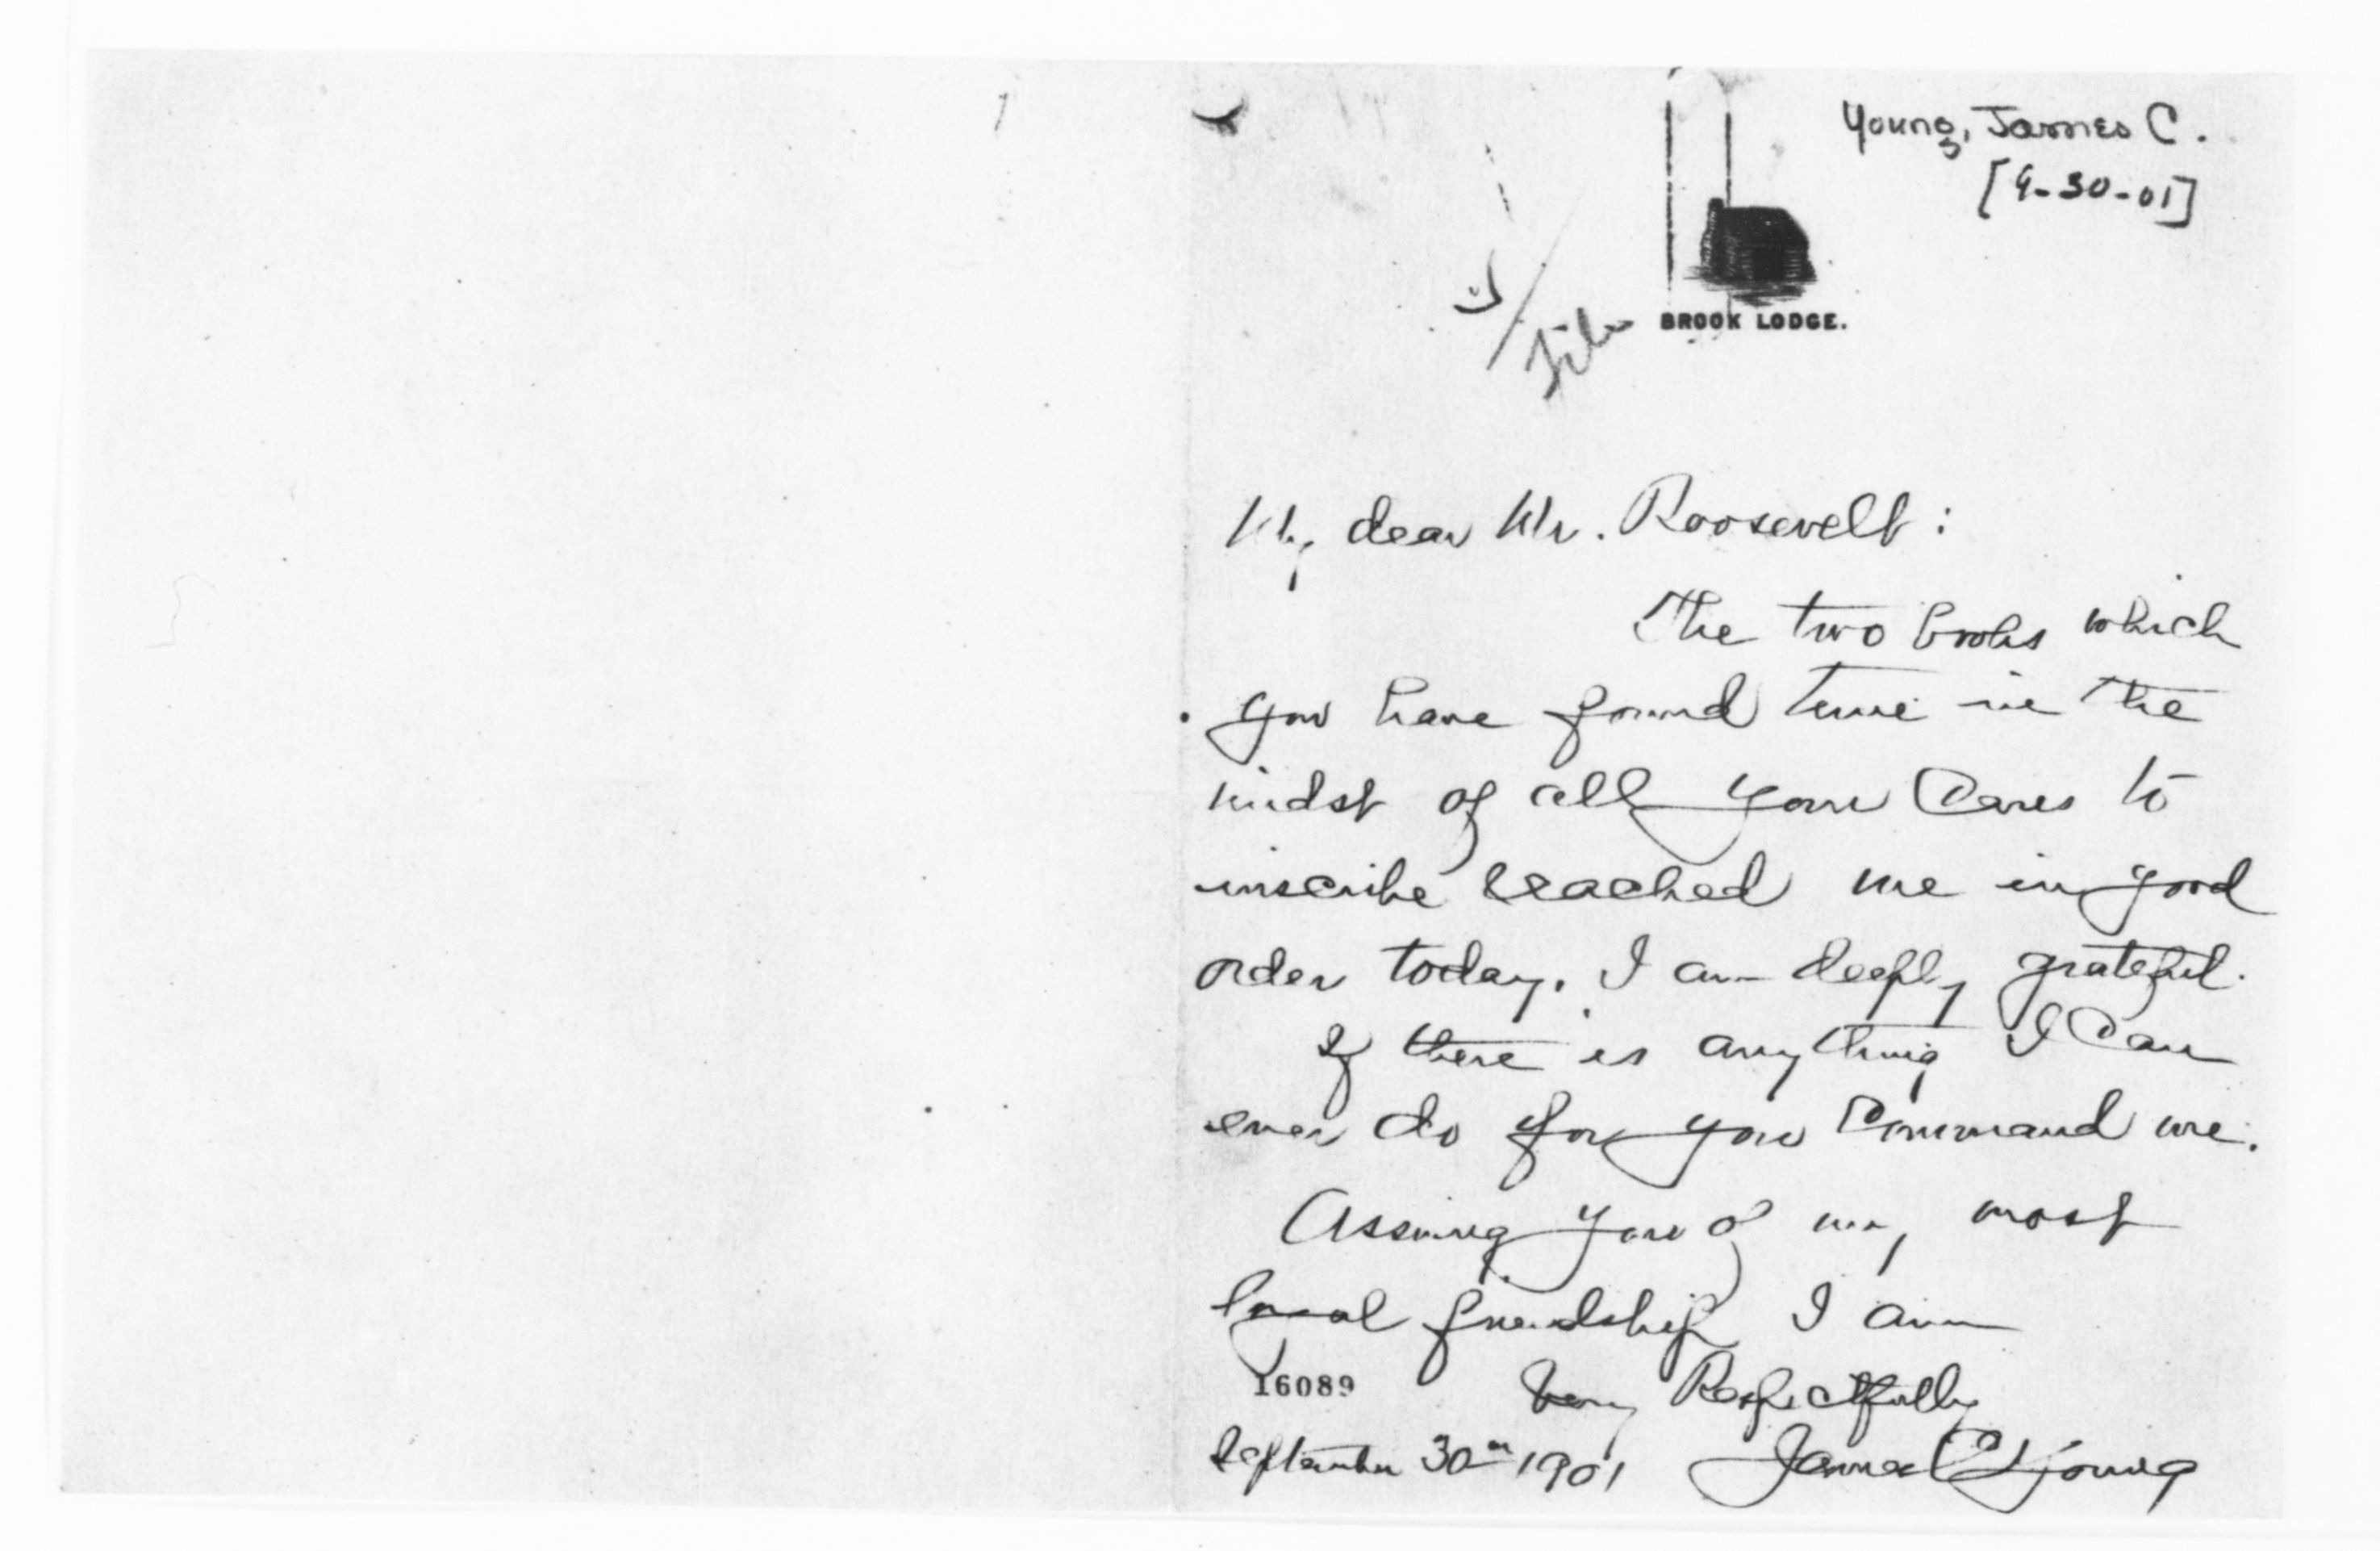 Young, James C.
[9-30-01]
File
BROOK LODGE.
My dear Mr. Roosevelt:
The two books which
you have found time in the
midst of all your cares to
inscribe reached me in good
order today. I am deeply grateful.
If there is anything I can
ever do for you command me.
Assuring you of my most
loyal friendship I am
16089
Very Respectfully
September 30th 1901 James C Young